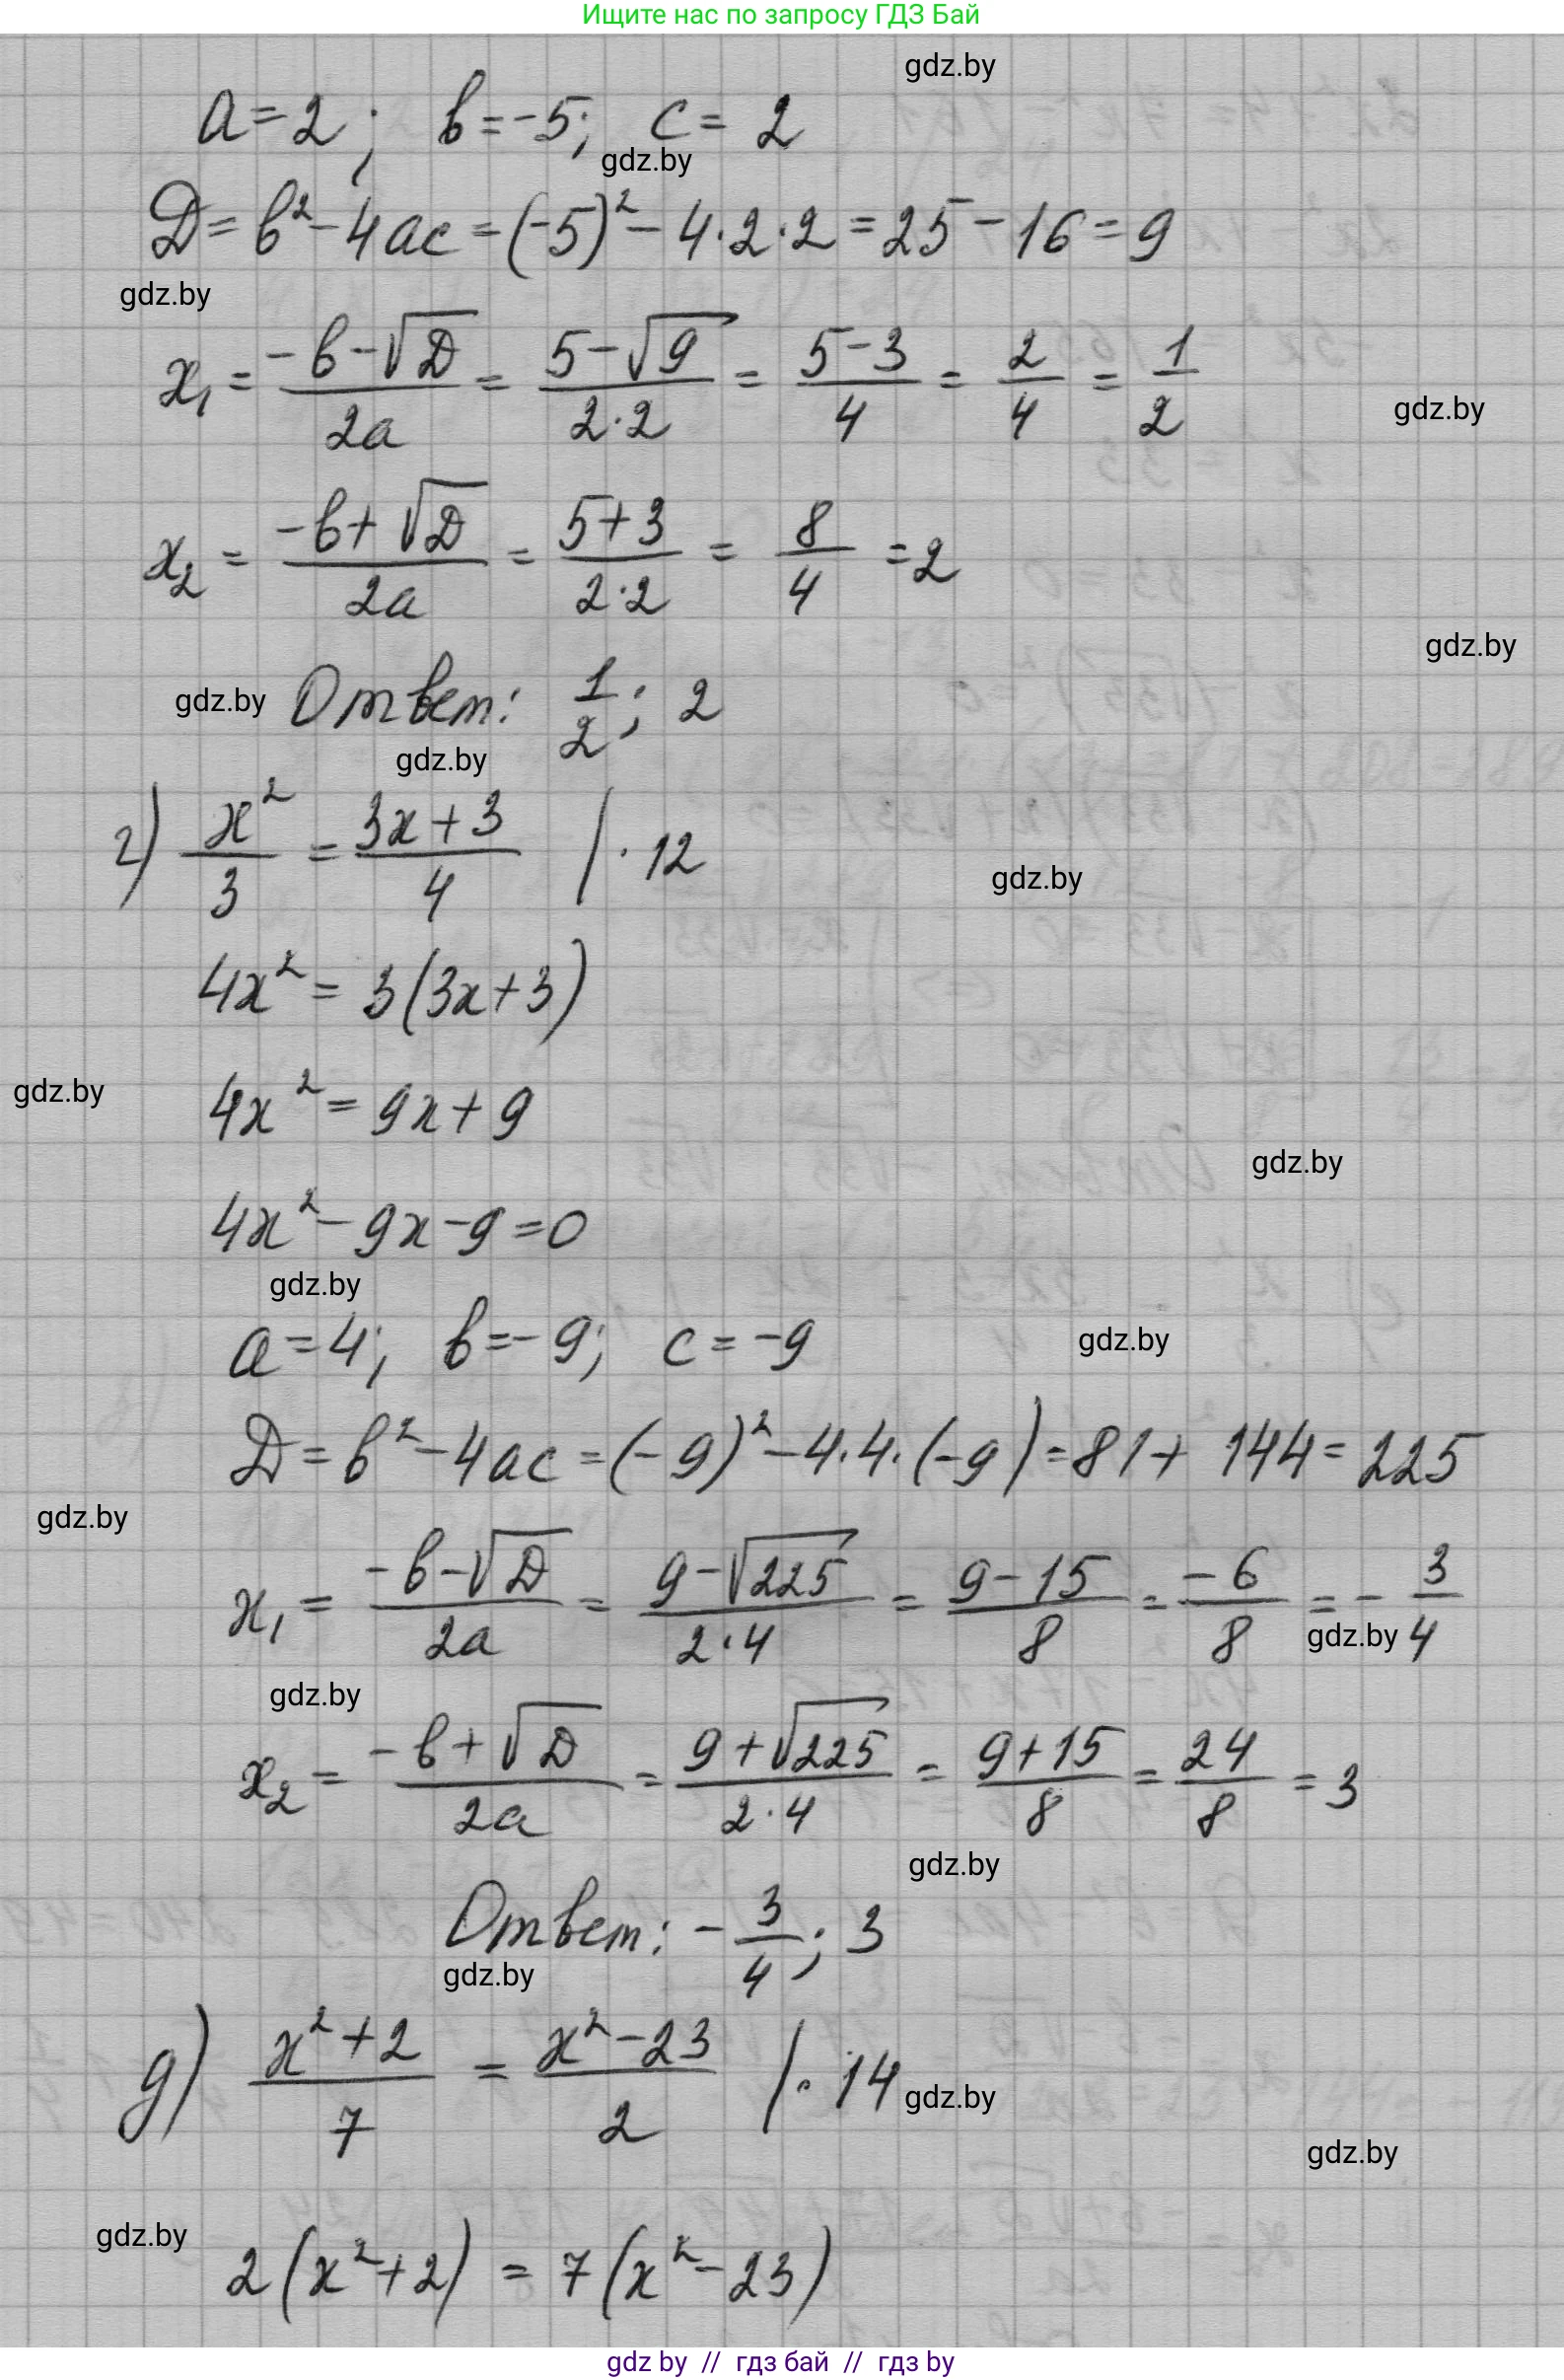 Ищите нас по запросу ГДЗ Бай
gdz.by
a=2; b=-5; c= 2
gdz.by
D= b² - 4ac = (-5)² - 4·2·2 = 25 - 16 = 9
gdz.by
x₁ = (-b-√D)/2a = (5-√9)/2·2 = (5-3)/4 = 2/4 = 1/2
gdz.by
x₂ = (-b+√D)/2a = (5+3)/2·2 = 8/4 = 2
gdz.by
gdz.by Ответ: 1/2; 2
gdz.by
г) x²/3 = (3x+3)/4 | · 12
gdz.by
4x² = 3(3x+3)
gdz.by
4x² = 9x + 9
gdz.by
4x² - 9x - 9 = 0
gdz.by
a=4; b=-9; c=-9
gdz.by
D = b² - 4ac = (-9)² - 4·4·(-9) = 81 + 144 = 225
gdz.by
x₁ = (-b-√D)/2a = (9-√225)/2·4 = (9-15)/8 = -6/8 = -3/4
gdz.by
gdz.by
x₂ = (-b+√D)/2a = (9+√225)/2·4 = (9+15)/8 = 24/8 = 3
gdz.by
Ответ: -3/4; 3
gdz.by
д) (x²+2)/7 = (x²-23)/2 | · 14
gdz.by
gdz.by
gdz.by
2(x²+2) = 7(x²-23)
gdz by // гдз бай // гдз by